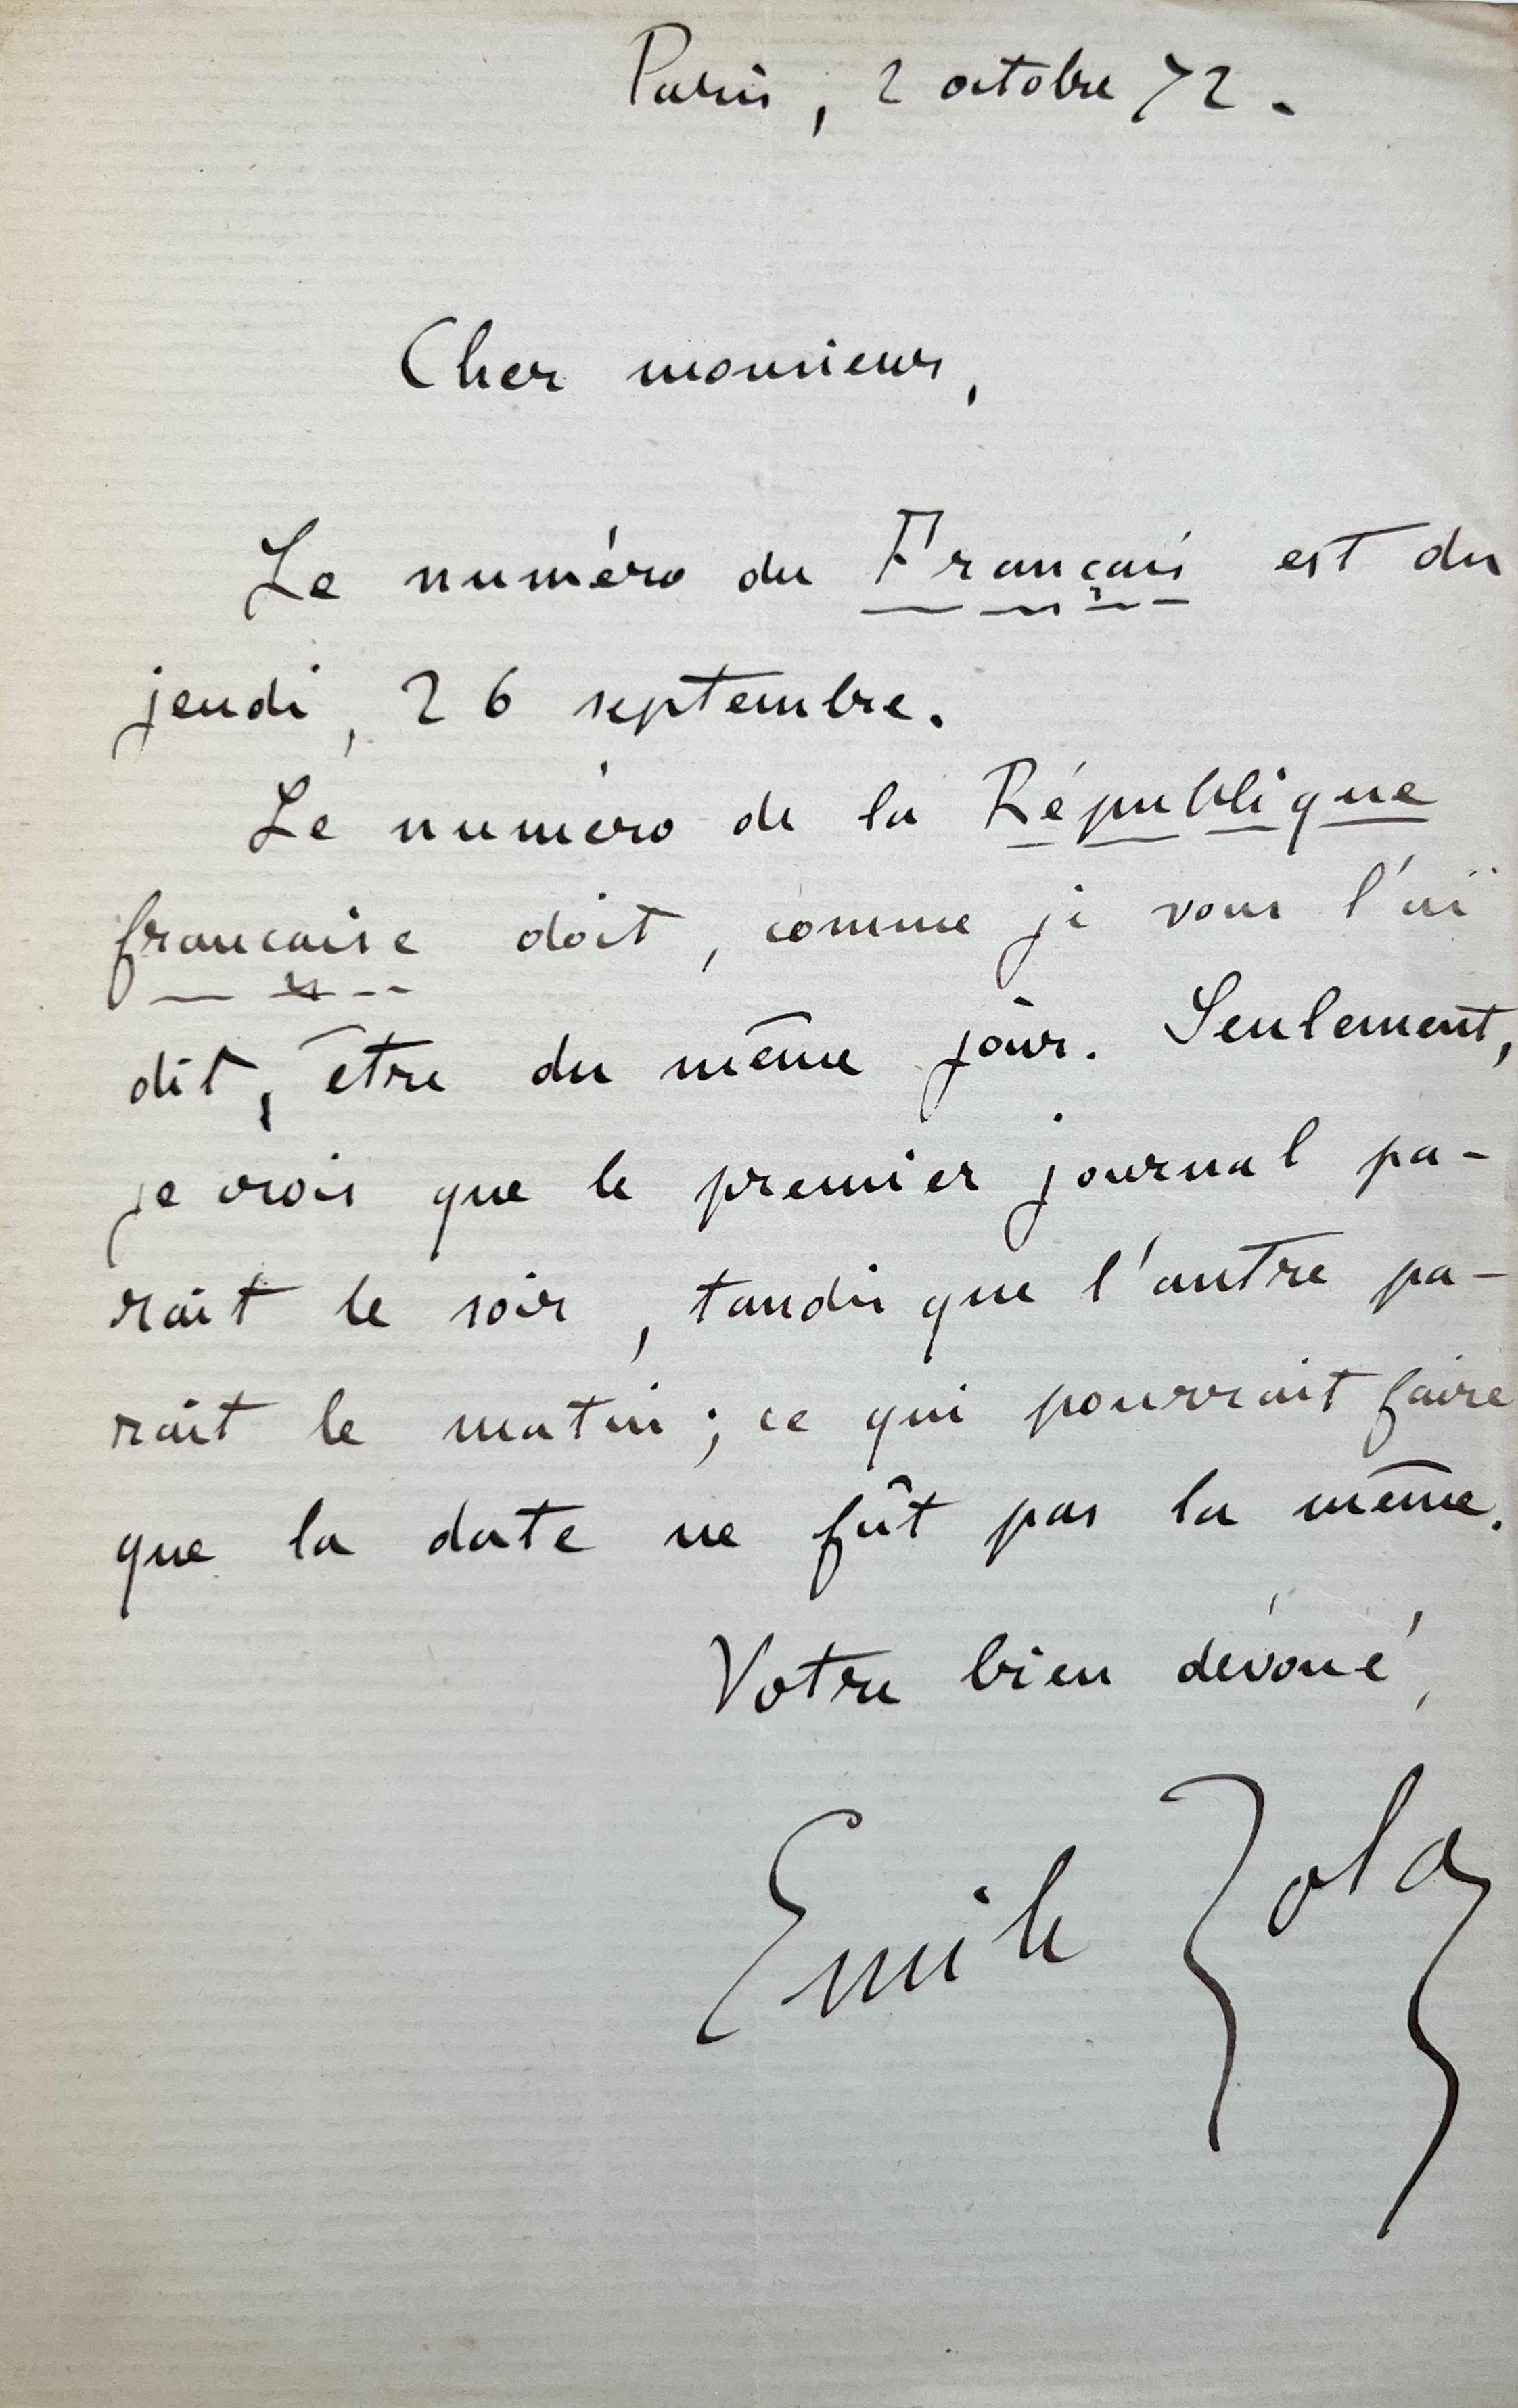 Paris, 2 octobre 72.
Cher monsieur,
Le numéro du Français est du
jeudi, 26 septembre.
Le numéro de la République
française doit, comme je vous l'ai
dit, être du même jour. Seulement,
je crois que le premier journal pa-
raît le soir, tandis que l'autre pa-
raît le matin ; ce qui pourrait faire
que la date ne fût pas la même.
Votre bien dévoué,
Emile Zola